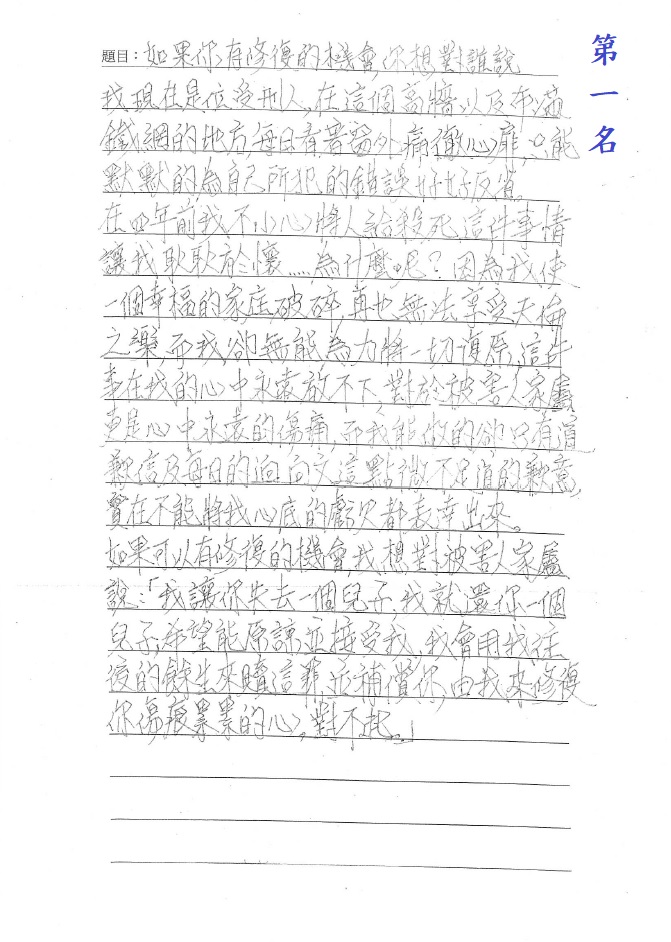 第一名
題目：如果你有修復的機會,你想對誰說
我現在是位受刑人,在這個高牆以及布滿
鐵網的地方,每日看著窗外痛徹心扉,只能
默默的為自己所犯的錯誤好好反省。
在四年前我不小心將人給殺死,這件事情
讓我耿耿於懷.....為什麼呢?因為我使
一個幸福的家庭破碎,再也無法享受天倫
之樂,而我卻無能為力將一切復原,這件
事在我的心中永遠放不下,對於被害人家屬
更是心中永遠的傷痛,而我能做的卻只有道
歉信及每日的迴向文這點微不足道的歉意,
實在不能將我心底的虧欠都表達出來。
如果可以有修復的機會,我想對被害人家屬
說:「我讓你失去一個兒子,我就還你一個
兒子,希望能原諒並接受我,我會用我往
後的餘生來贖這罪並補償你,由我來修復
你傷痕累累的心,對不起。」